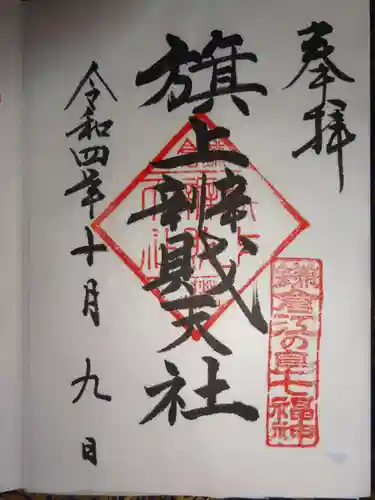 奉拝
鎌倉江の島七福神
旗上辨財天社
令和四年十月九日